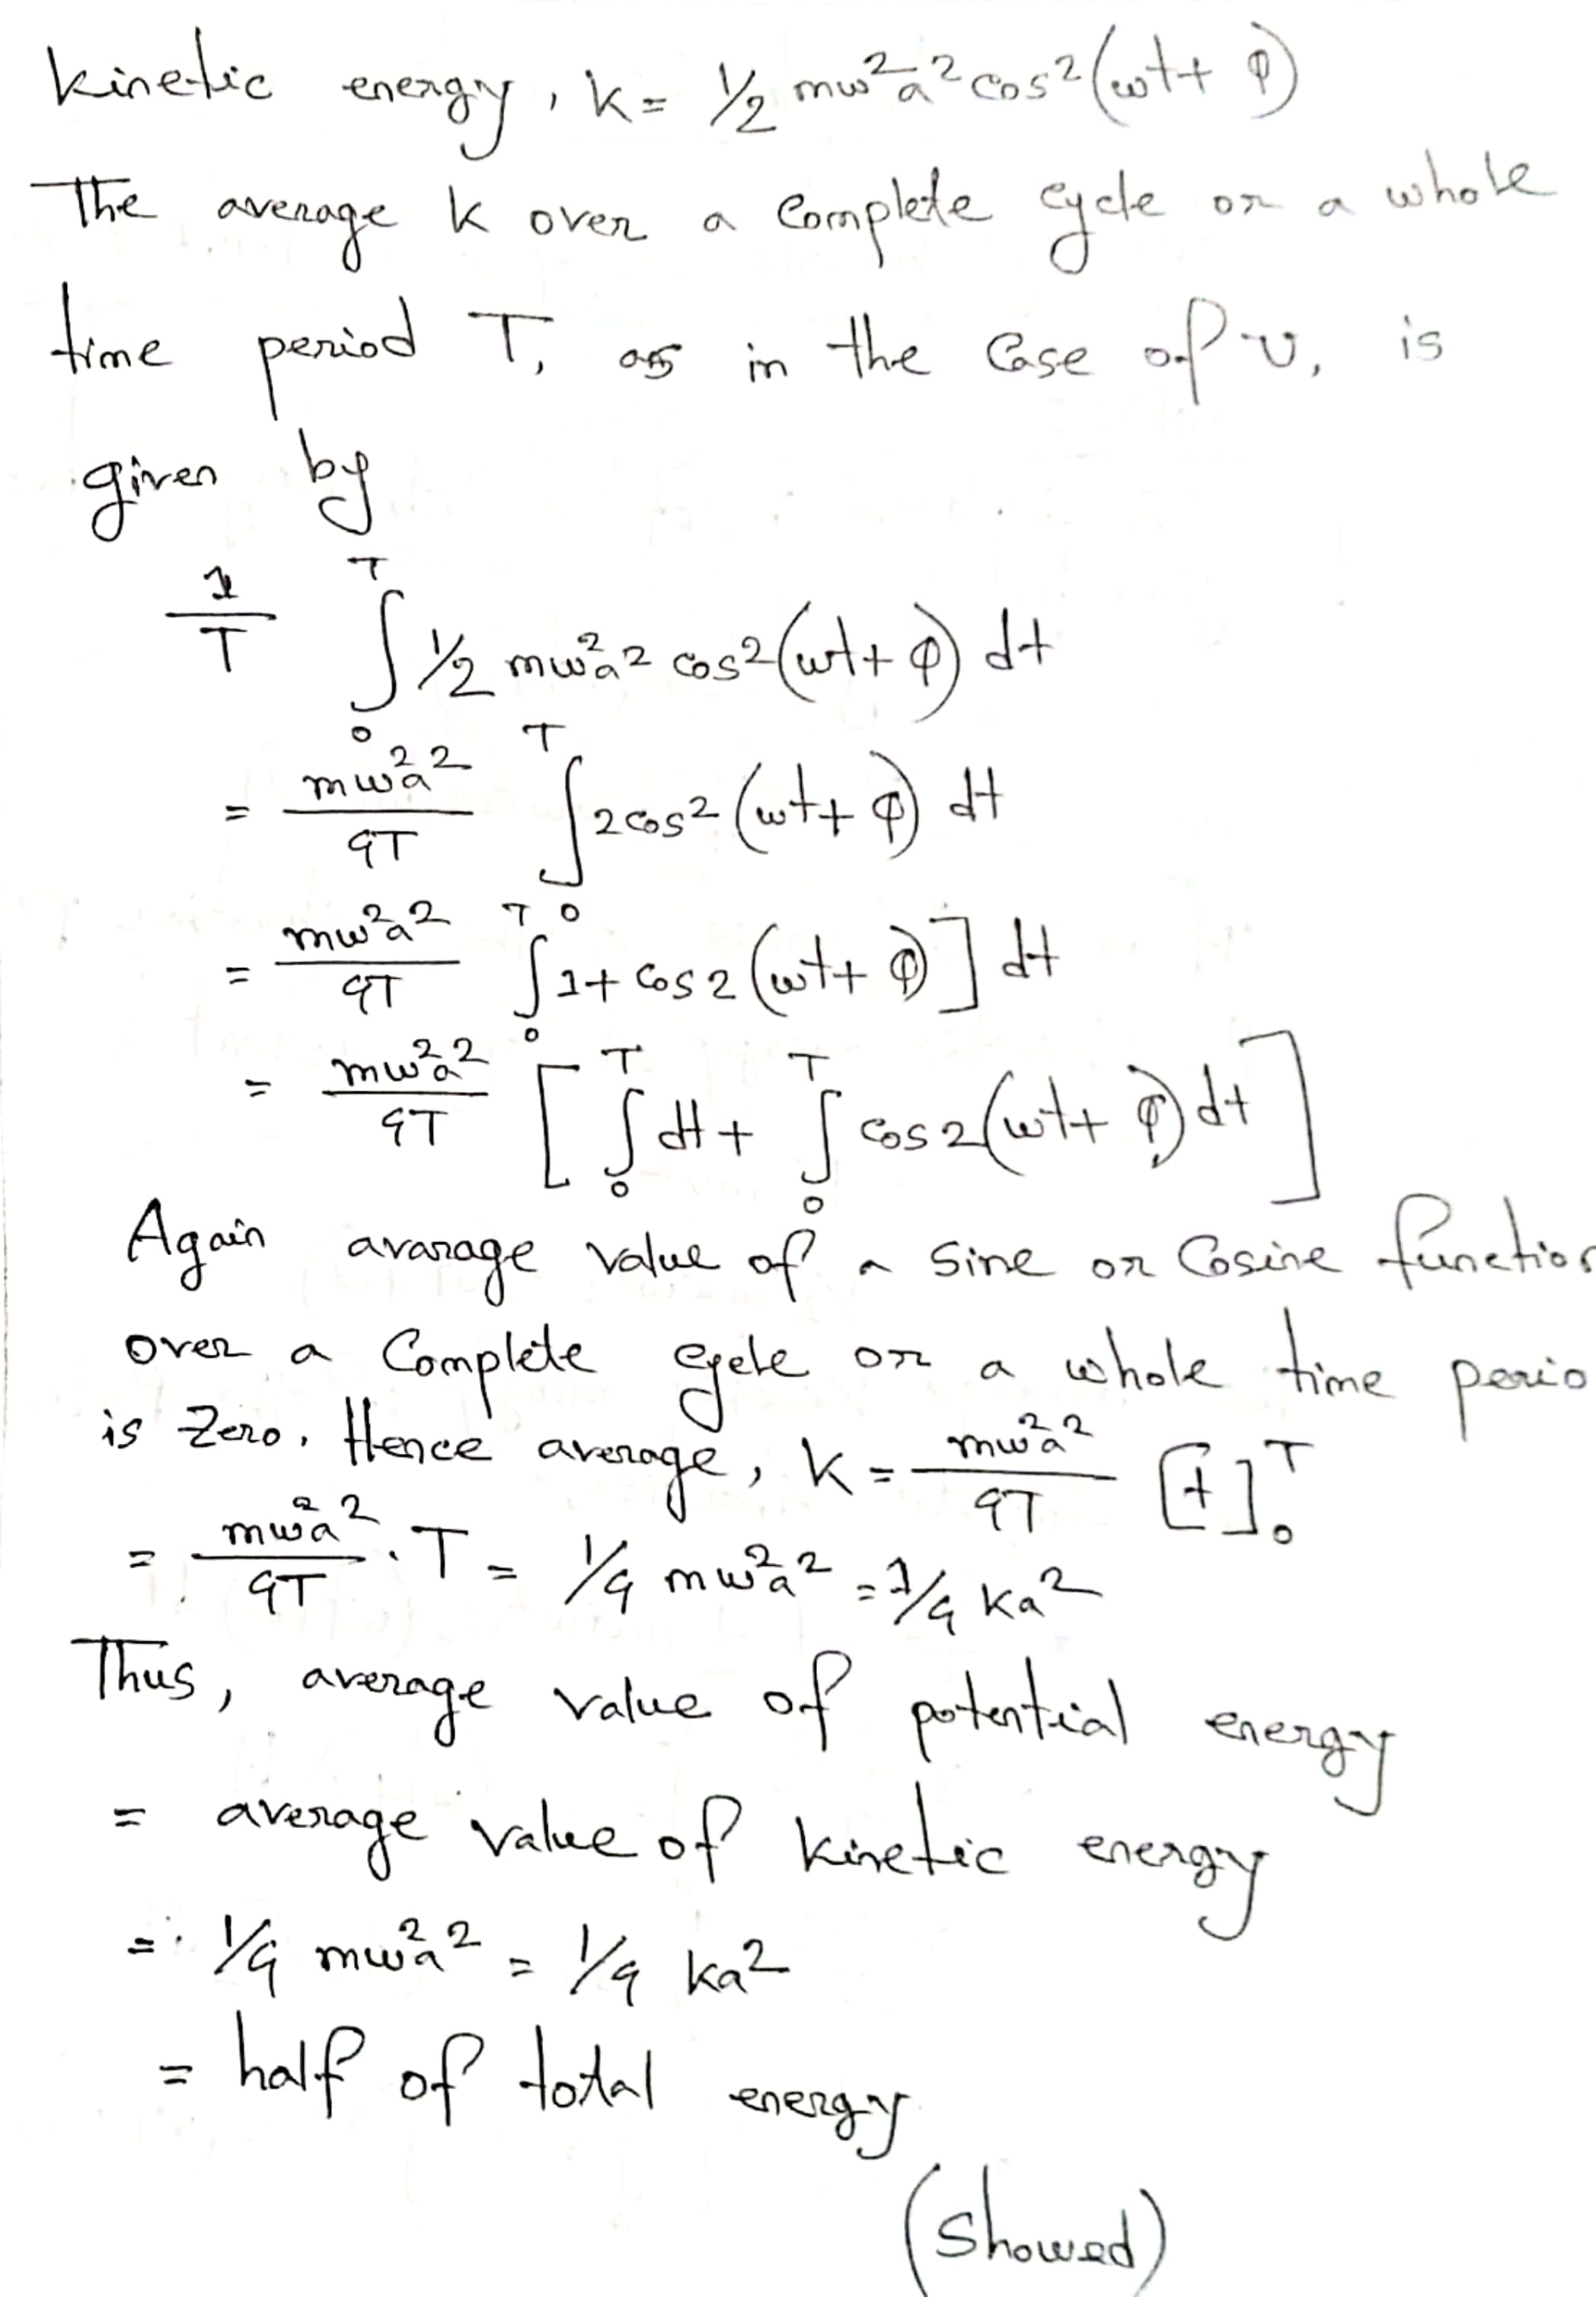 kinetic energy, k = 1/2 mω²a² cos² (ωt + φ)
The average k over a complete cycle or a whole
time period T, as in the case of U, is
given by
1/T ∫₀ᵀ 1/2 mω²a² cos² (ωt + φ) dt
= mω²a²/4T ∫₀ᵀ 2 cos² (ωt + φ) dt
= mω²a²/4T ∫₀ᵀ 1 + cos 2 (ωt + φ)] dt
= mω²a²/4T [∫₀ᵀ dt + ∫₀ᵀ cos 2 (ωt + φ) dt]
Again avarage value of a sine or cosine function
over a complete cycle or a whole time perio
is zero. Hence average, k = mω²a²/4T [t]₀ᵀ
= mω²a²/4T . T = 1/4 mω²a² = 1/4 ka²
Thus, average value of potential energy
= average value of kinetic energy
= 1/4 mω²a² = 1/4 ka²
= half of total energy
(Showed)